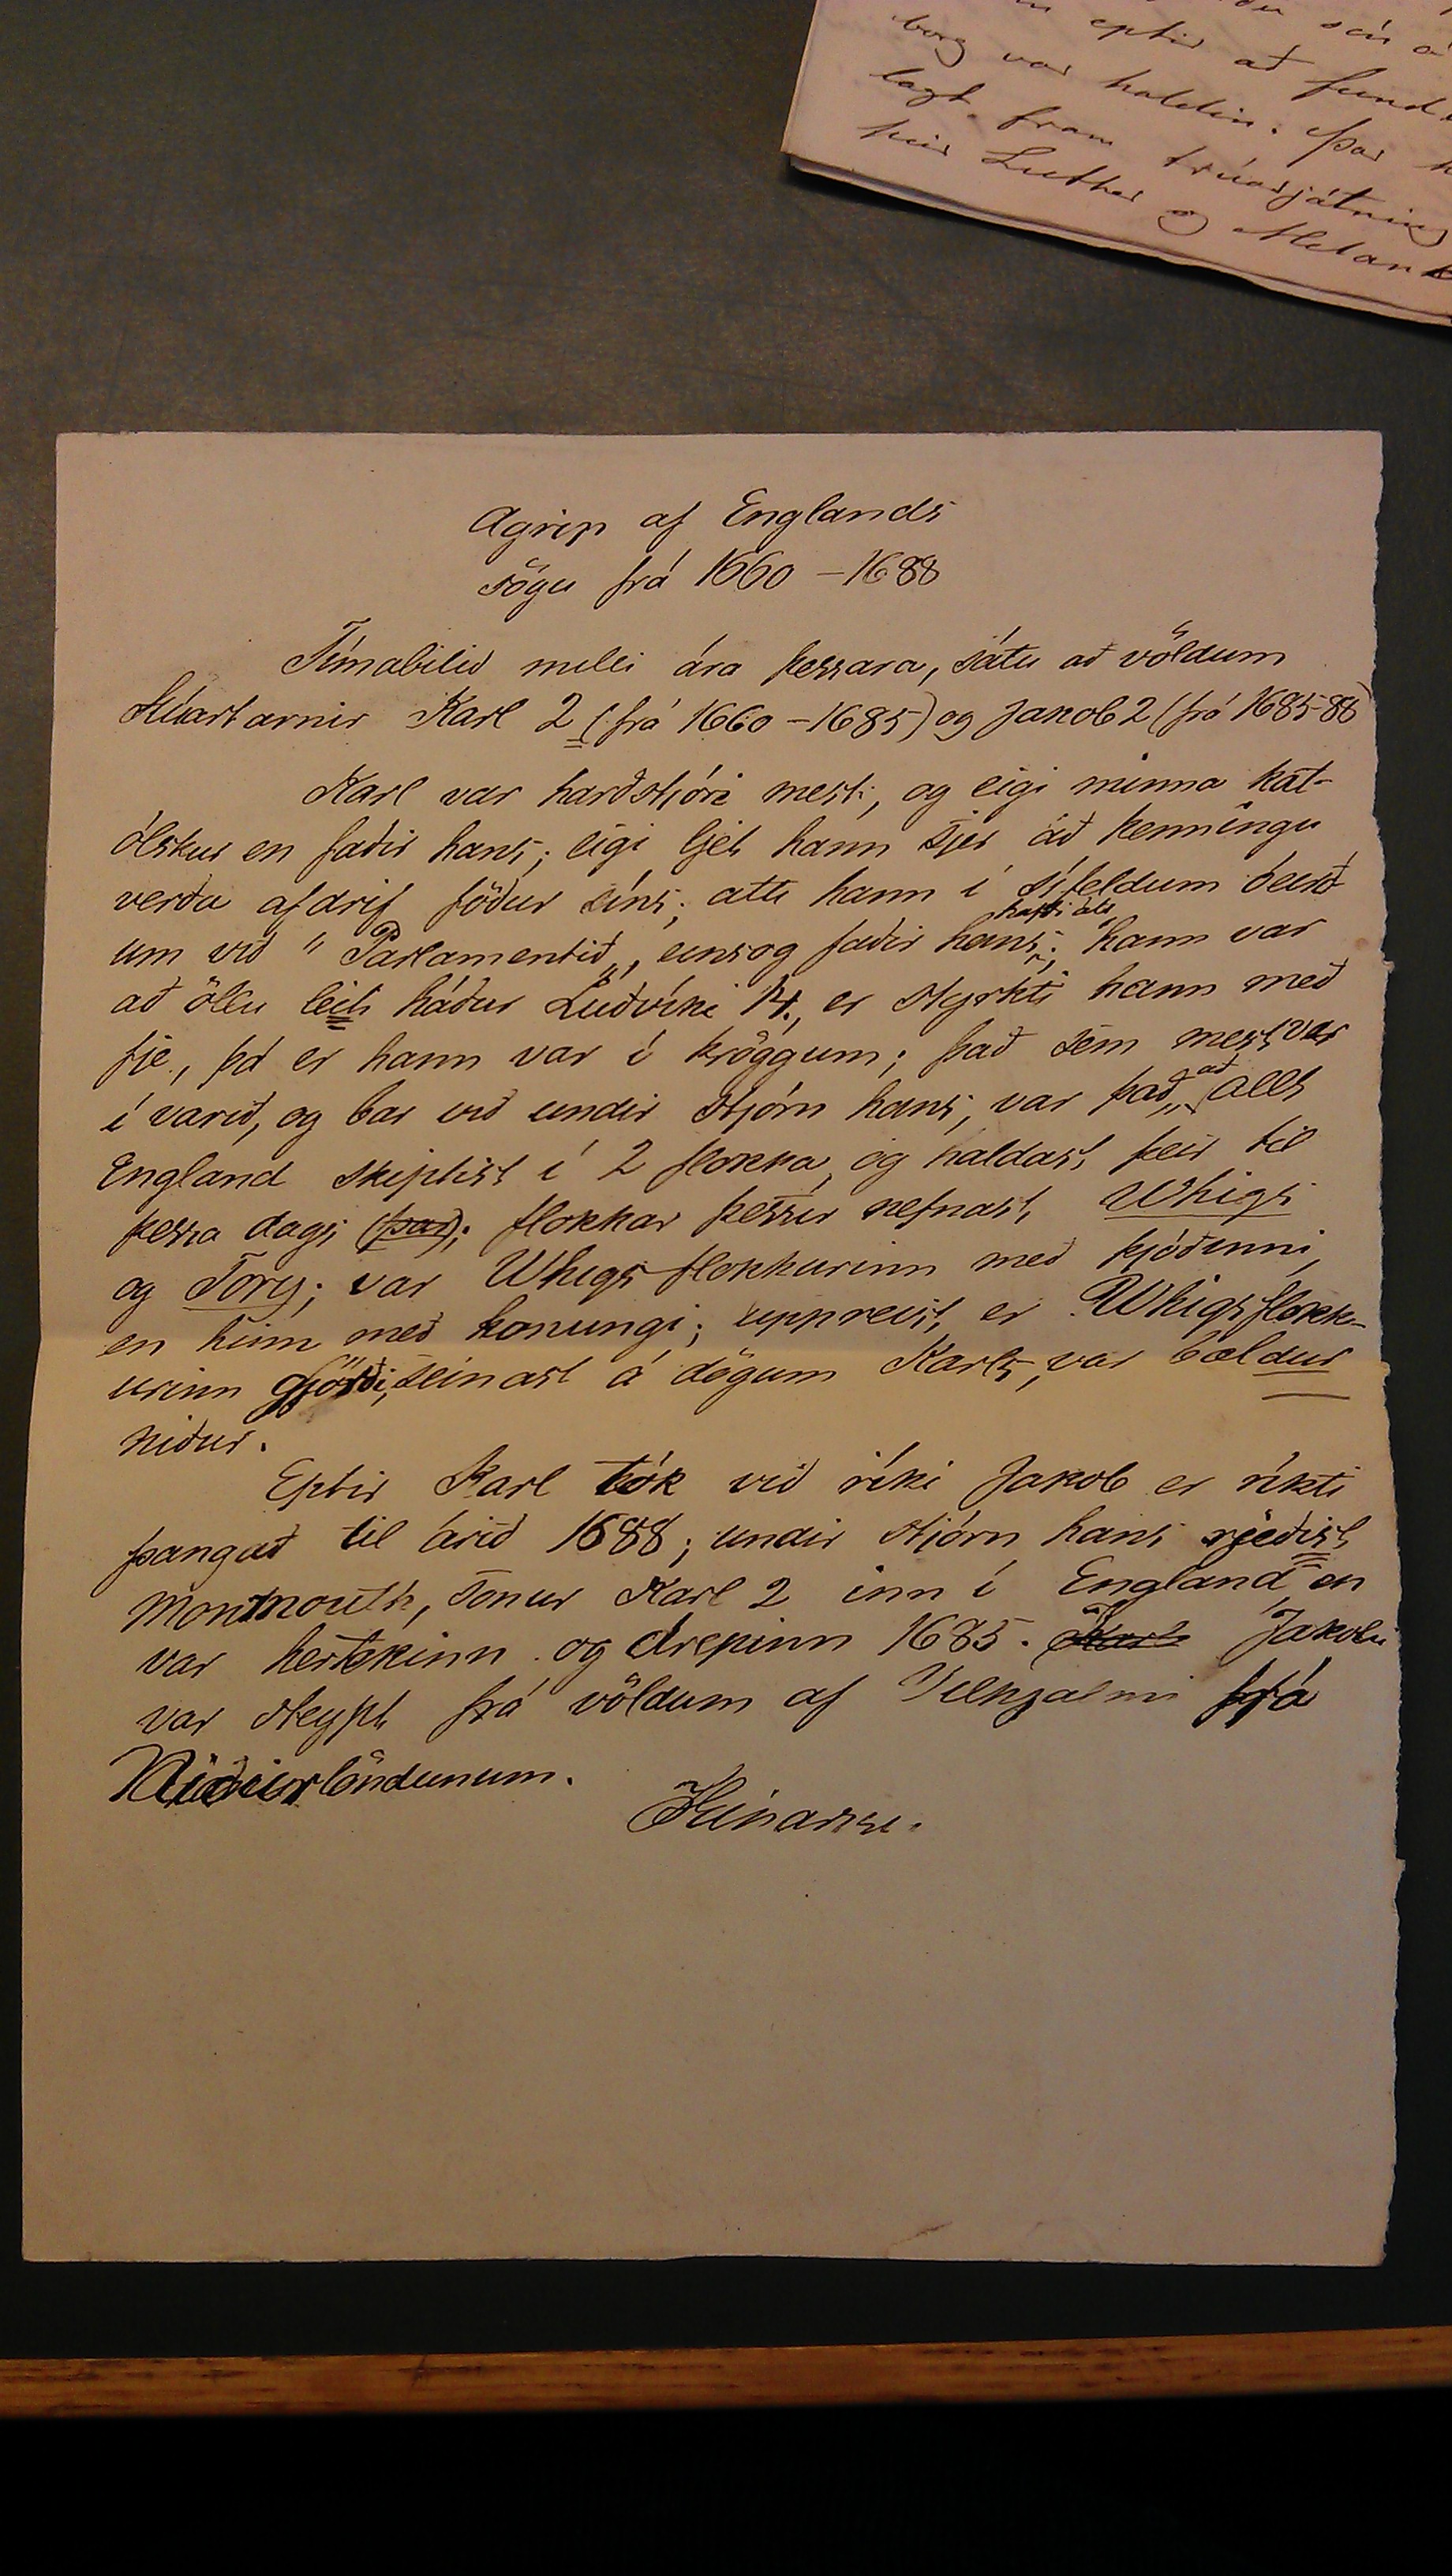 sér á
eptir að fund
borg var haldin. Þar
lagt fram trúarjátning
heir Luther og Melank
Agrip af Englands
sögu frá 1660 – 1688
Tímabilið milli ára þessara, sátu að völdum
Stúartarnir Karl 2 (frá 1660 – 1685) og Jakob 2 (frá 1685-88)
Karl var harðstjóri mesti, og eigi minna kat-
ólskur en faðir hans; eigi ljet hann sjer að kenningu
verða afdrif föður síns; atti hann í sífeldum óeirð
um við "Parlamentið", einsog faðir hans hafði átt; hann var
að öllu leiti háður Luðvíki 14., er styrkti hann með
fje, þá er hann var í kröggum; það sem mest var
í varið, og bar við undir stjórn hans, var það, að allt
England skiptist í 2 flokka, og haldast þeir til
þessa dags (það); flokkar þessir nefnast Whigs
og Tory; var Whigs flokkurinn með þjóðinni,
en hinn með konungi; uppreist, er Whigsflokk-
urinn gjörði, seinast á dögum Karls, var bældur
niður.
Eptir Karl tók við ríki Jakob er ríkti
þangað til árið 1688; undir stjórn hans rjeðist
Monmouth, sonur Karl 2 inn í England, en
var hertekinn og drepinn 1685. Karli Jakobi
var steypt frá völdum af Vilhjalmi frá
Niðurlöndunum.